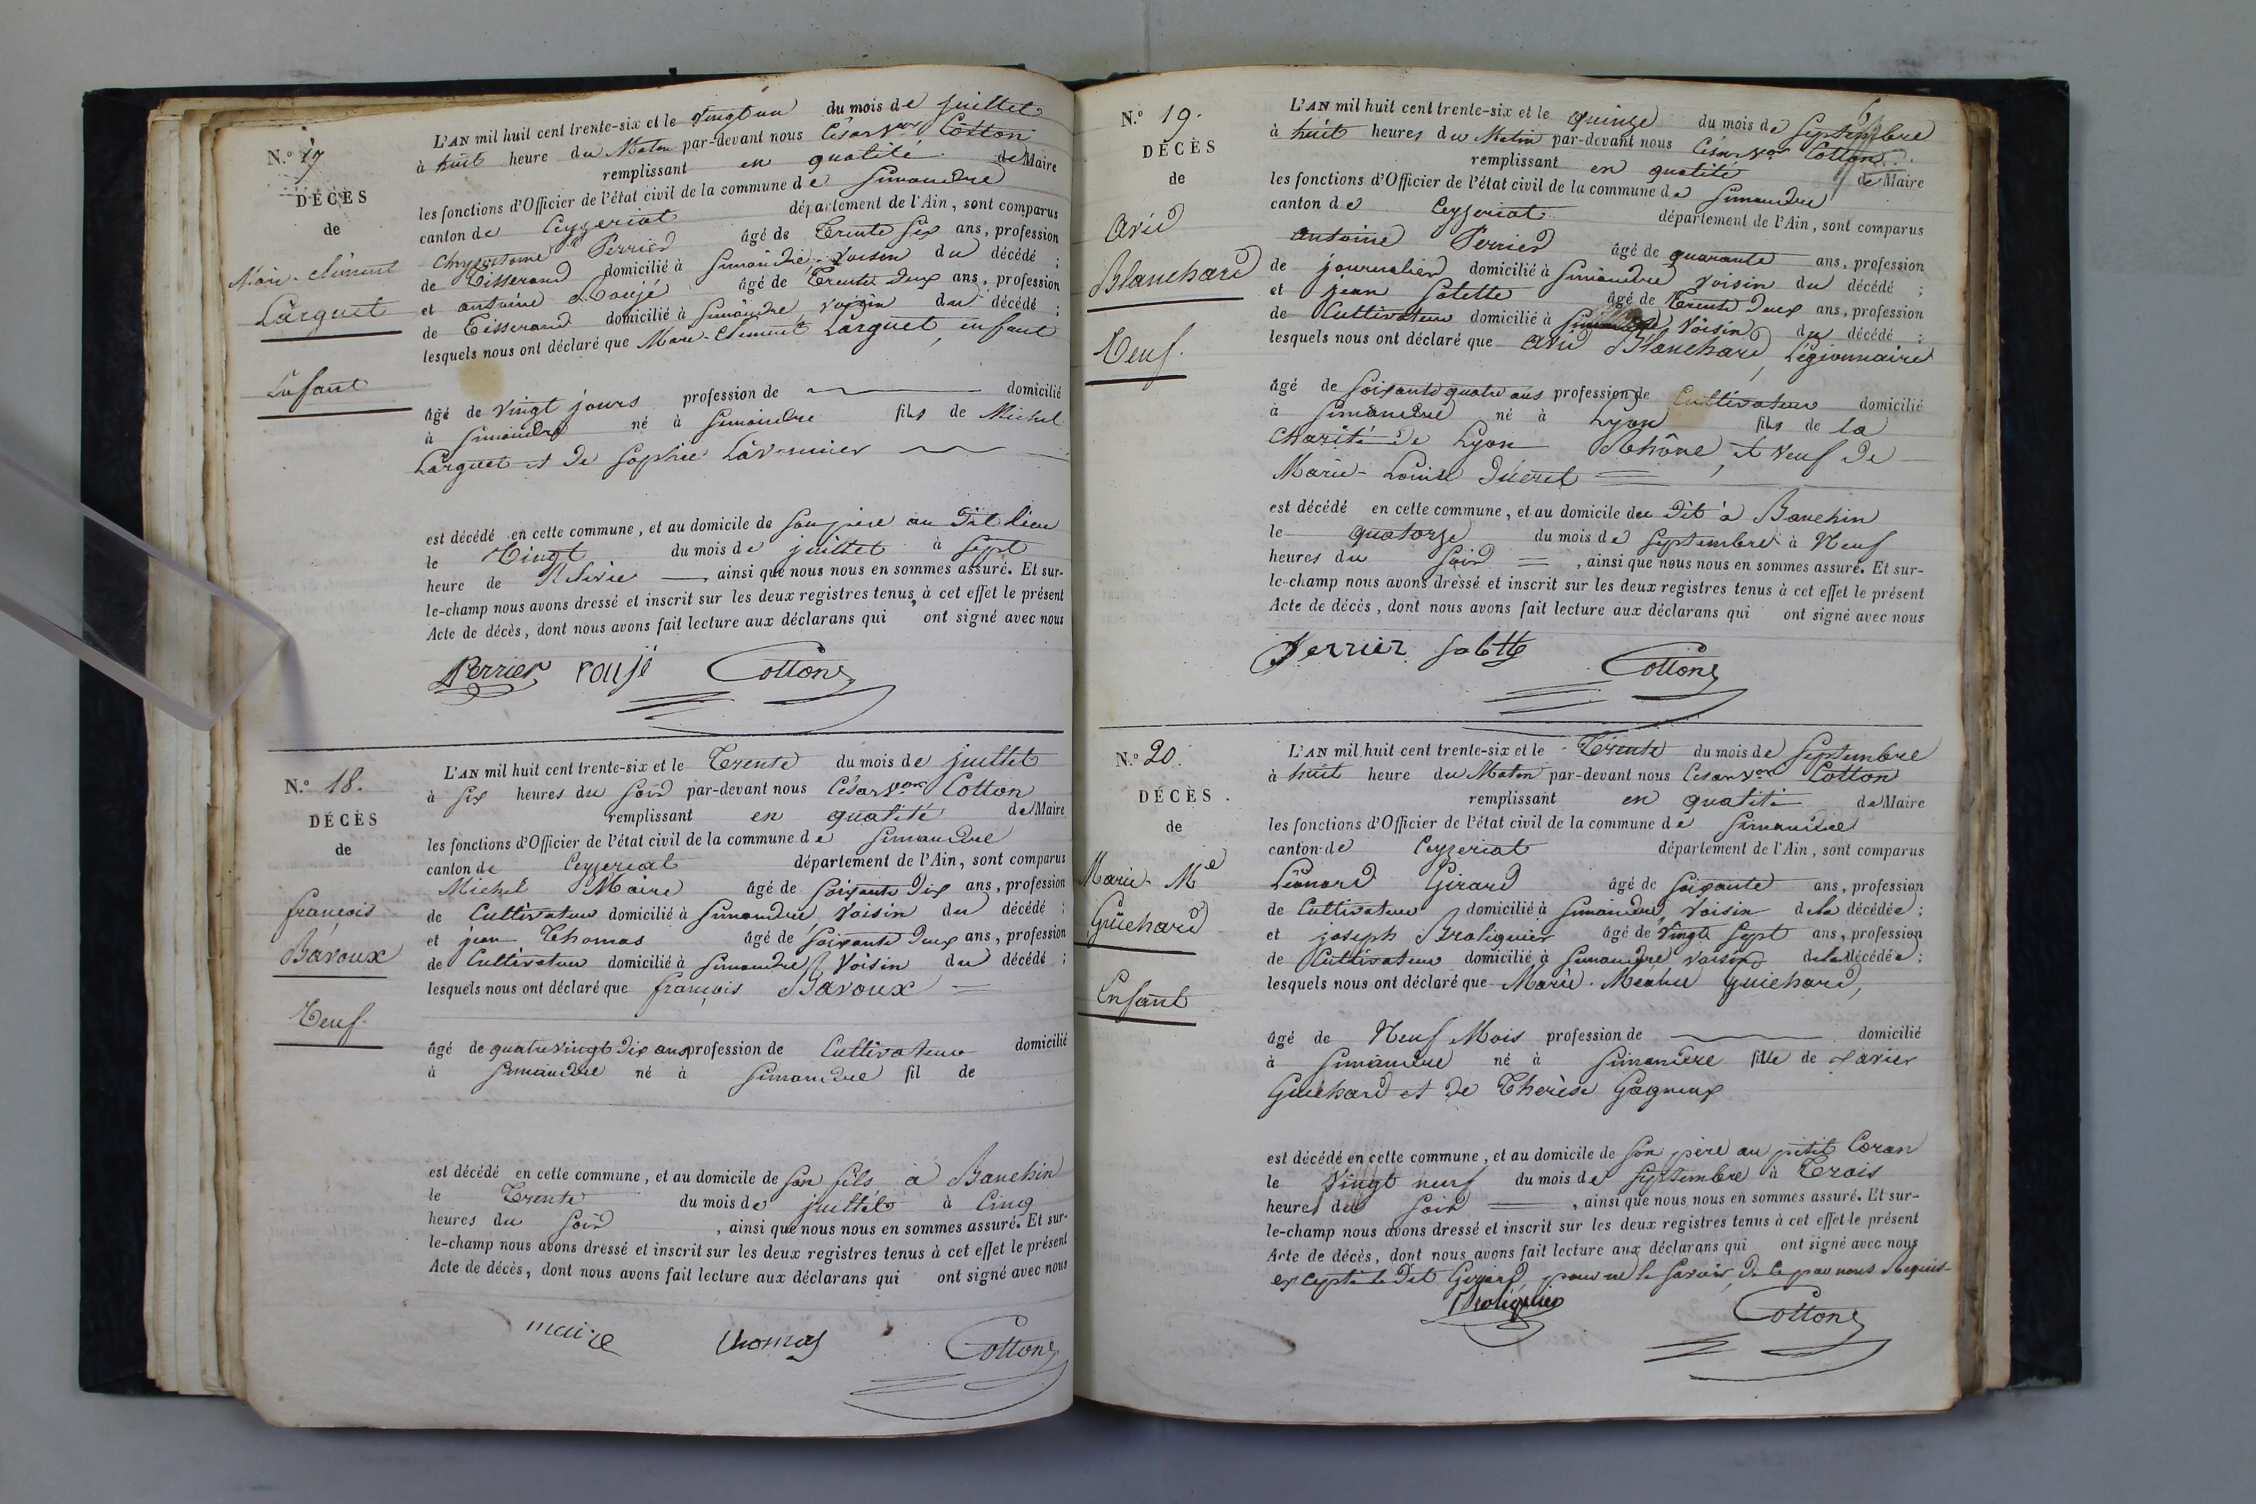 N.º 17
DÉCÈS
de
Larguet
Enfant
L'AN mil huit cent trente-six et le vingt un du mois de juillet
à huit heure du Matin par-devant nous César Vor Cotton
remplissant en qualité de Maire
les fonctions d'Officier de l'état civil de la commune de Simandre
canton de Ceyzeriat département de l'Ain, sont comparus
Chrysostome Perrier âgé de Trente Six ans, profession
de Tisserand domicilié à Simandre, Voisin du décédé ;
et antoine Roujé âgé de Trente deux ans, profession
de Tisserand domicilié à Simandre, voisin du décédé ;
lesquels nous ont déclaré que Marc-Clément Larguet, enfant
âgé de vingt jours profession de domicilié
à Simandre né à Simandre fils de Michel
Larguet et de Sophie
est décédé en cette commune, et au domicile de Son père au dit lieu
le Vingt du mois de juillet à Sept
heure de Relevée , ainsi que nous nous en sommes assuré. Et sur-
le-champ nous avons dressé et inscrit sur les deux registres tenus à cet effet le présent
Acte de décès, dont nous avons fait lecture aux déclarans qui ont signé avec nous
Perrier roujé Cotton
N.º 18.
DÉCÈS
de
françois
Bavoux
Veuf.
L'AN mil huit cent trente-six et le Trente du mois de juillet
à Six heures du Soir par-devant nous César Vor Cotton
remplissant en qualité de Maire
les fonctions d'Officier de l'état civil de la commune de Simandre
canton de Ceyzeriat département de l'Ain, sont comparus
Michel Maire âgé de Soixante Dix ans, profession
de Cultivateur domicilié à Simandre, Voisin du décédé ;
et jean Thomas âgé de Soixante deux ans, profession
de Cultivateur domicilié à Simandre, Voisin du décédé ;
lesquels nous ont déclaré que françois Bavoux
âgé de quatre vingt Dix ans profession de Cultivateur domicilié
à Simandre né à Simandre fil de
est décédé en cette commune, et au domicile de Son fils à Banchin
le Trente du mois de juillet à Cinq
heures du Soir , ainsi que nous nous en sommes assuré. Et sur-
le-champ nous avons dressé et inscrit sur les deux registres tenus à cet effet le présent
Acte de décès, dont nous avons fait lecture aux déclarans qui ont signé avec nous
maire thomas Cotton
N.º 19.
DÉCÈS
de
Avid
Blanchard
Veuf.
L'AN mil huit cent trente-six et le quinze du mois de Septembre
à huit heures du Matin par-devant nous César Vor Cotton
remplissant en qualité de Maire
les fonctions d'Officier de l'état civil de la commune de Simandre
canton de Ceyzeriat département de l'Ain, sont comparus
antoine Perrier âgé de quarante ans, profession
de journalier domicilié à Simandre Voisin du décédé ;
et jean Solette âgé de Trente Deux ans, profession
de Cultivateur domicilié à Simandre, Voisin du décédé ;
lesquels nous ont déclaré que Avid Blanchard, Légionnaire
âgé de Soixante quatre ans profession de Cultivateur domicilié
à Simandre né à Lyon fils de la
Charité de Lyon Rhône, et Veuf de
Marie-Louise Ducret
est décédé en cette commune, et au domicile du Dit à Banchin
le quatorze du mois de Septembre à Neuf
heures du Soir , ainsi que nous nous en sommes assuré. Et sur-
le-champ nous avons dressé et inscrit sur les deux registres tenus à cet effet le présent
Acte de décès, dont nous avons fait lecture aux déclarans qui ont signé avec nous
Perrier Solette Cotton
N.º 20.
DÉCÈS
de
Marie-Me
Guichard
Enfant
L'AN mil huit cent trente-six et le Trente du mois de Septembre
à huit heure du Matin par-devant nous César Vor Cotton
remplissant en qualité de Maire
les fonctions d'Officier de l'état civil de la commune de Simandre
canton de Ceyzeriat département de l'Ain, sont comparus
Léonard Girard âgé de Soixante ans, profession
de Cultivateur domicilié à Simandre, Voisin de la décédée ;
et joseph Broliquier âgé de Vingt Sept ans, profession
de Cultivateur domicilié à Simandre voisin de la décédée ;
lesquels nous ont déclaré que Marie Guichard,
âgé de Neuf Mois profession de domicilié
à Simandre né à Simandre fille de Xavier
Guichard et de Thérèse Gagneux
est décédé en cette commune, et au domicile de Son père au petit Coran
le Vingt neuf du mois de Septembre à Trois
heures du Soir , ainsi que nous nous en sommes assuré. Et sur-
le-champ nous avons dressé et inscrit sur les deux registres tenus à cet effet le présent
Acte de décès, dont nous avons fait lecture aux déclarans qui ont signé avec nous
excepté le dit Girard, pour ne le Savoir, de ce par nous Requis
Broliquier Cotton